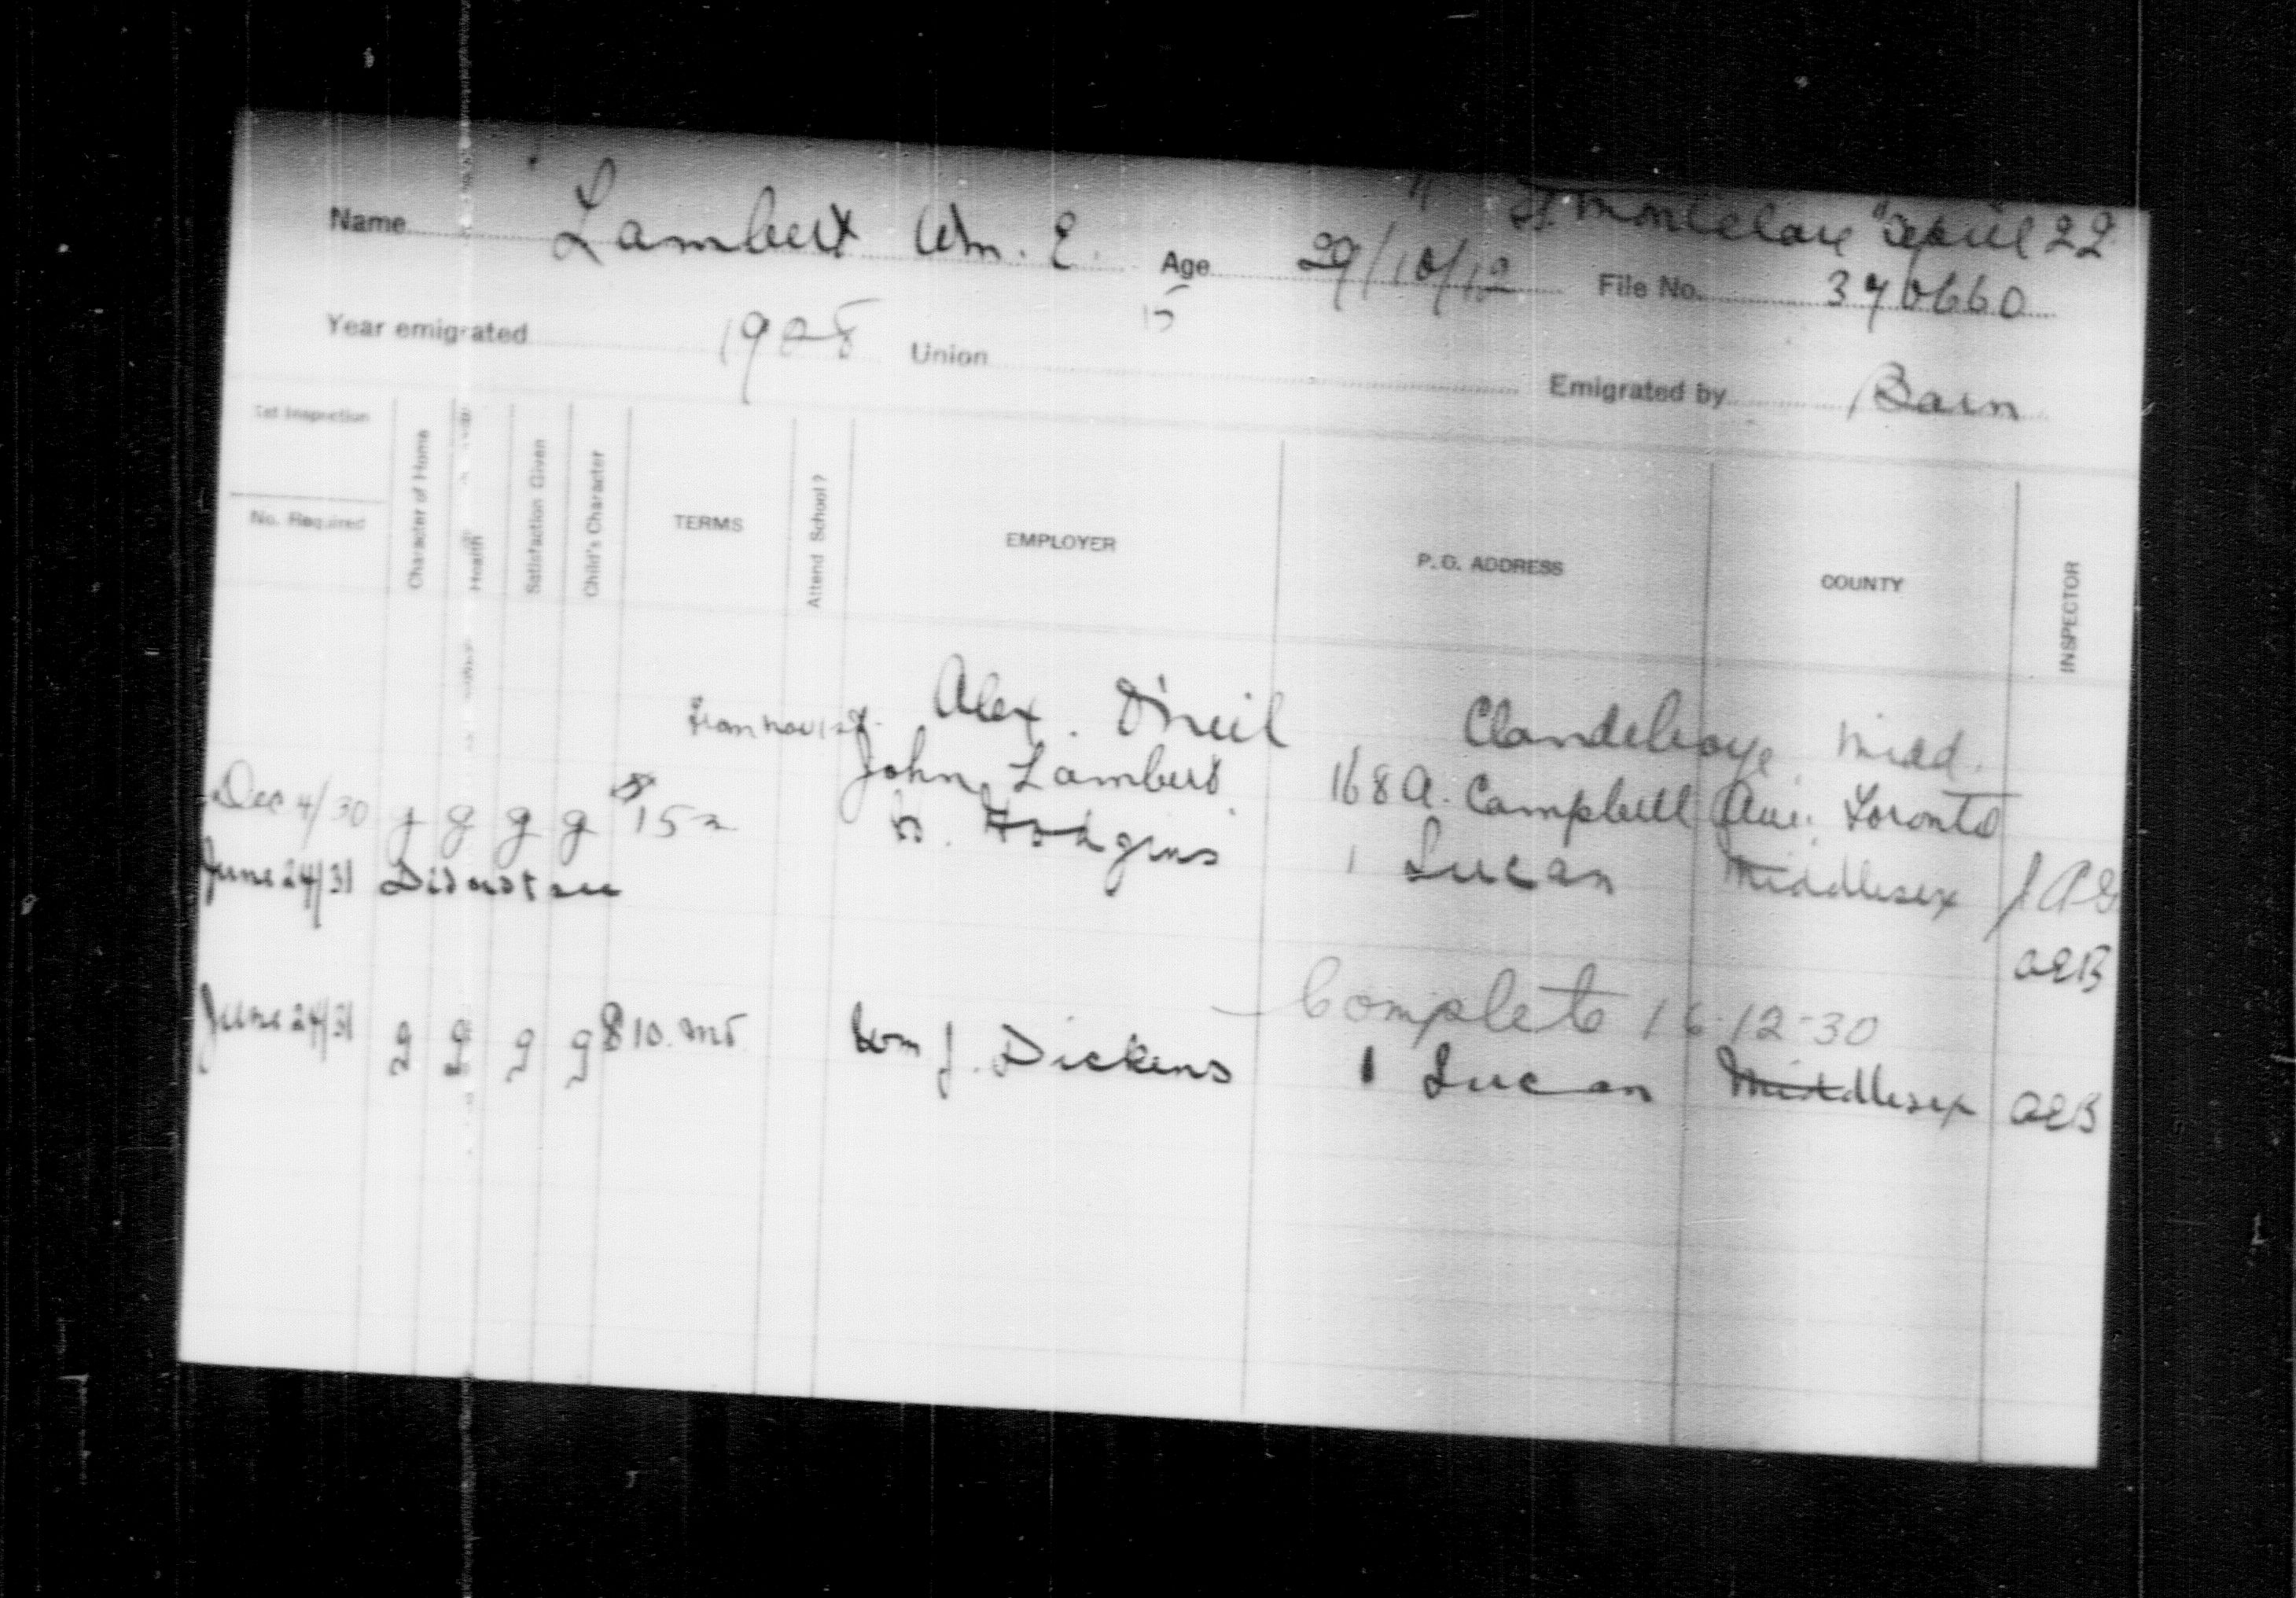 " St. Montclare" April 22
Name Lambert Wm. E. Age 29/10/12 File No. 370660
15
Year emigrated 1928 Union Emigrated by Barn
1st Inspection
No. Required Character of Home Health Satisfaction Given Child's Character TERMS Attend School? EMPLOYER P.O. ADDRESS COUNTY INSPECTOR
from Nov 1st Alex. O'Neil Clandeboye Midd.
John Lambert 168A. Campbell Ave. Toronto
Dec 4/30 g g g g $15 H. Hodgins 1 Lucan Middlesex
June 24/31 AEB
Complete 16-12-30
June 24/31 g g g g $10. mo Wm J. Dickens 1 Lucan Middlesex AEB